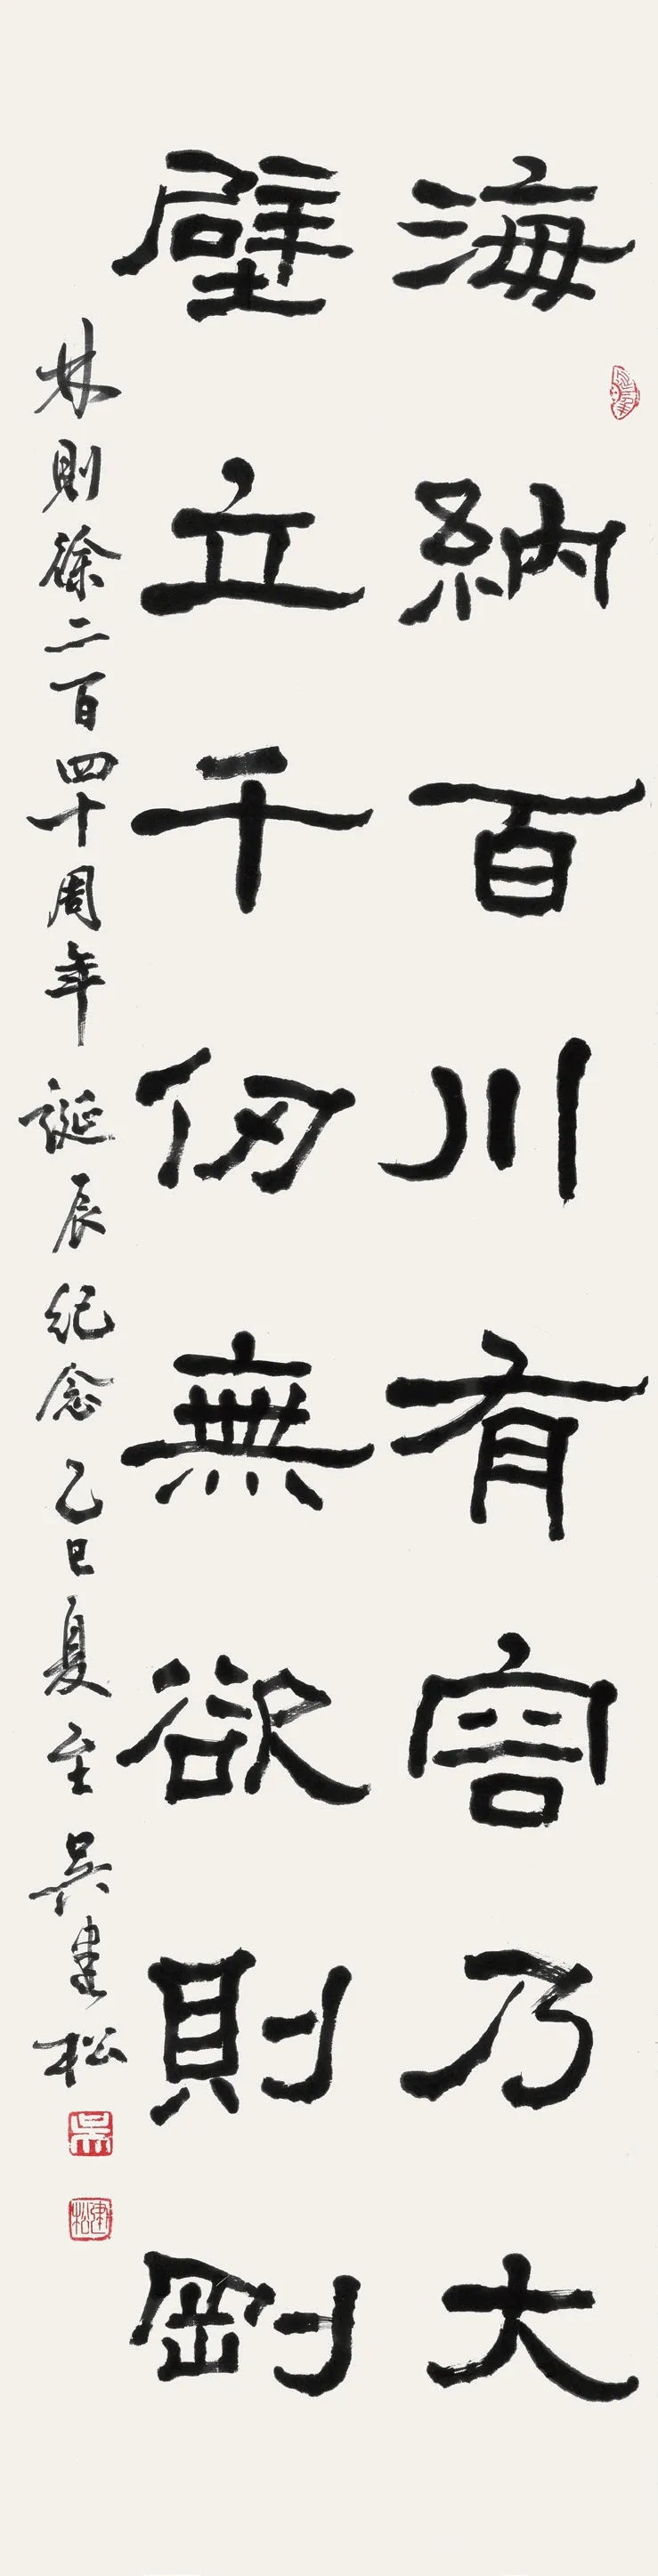 海納百川有容乃大
壁立千仞無欲則剛
林則徐二百四十周年誕辰纪念乙巳夏至吴建松
吴
建松